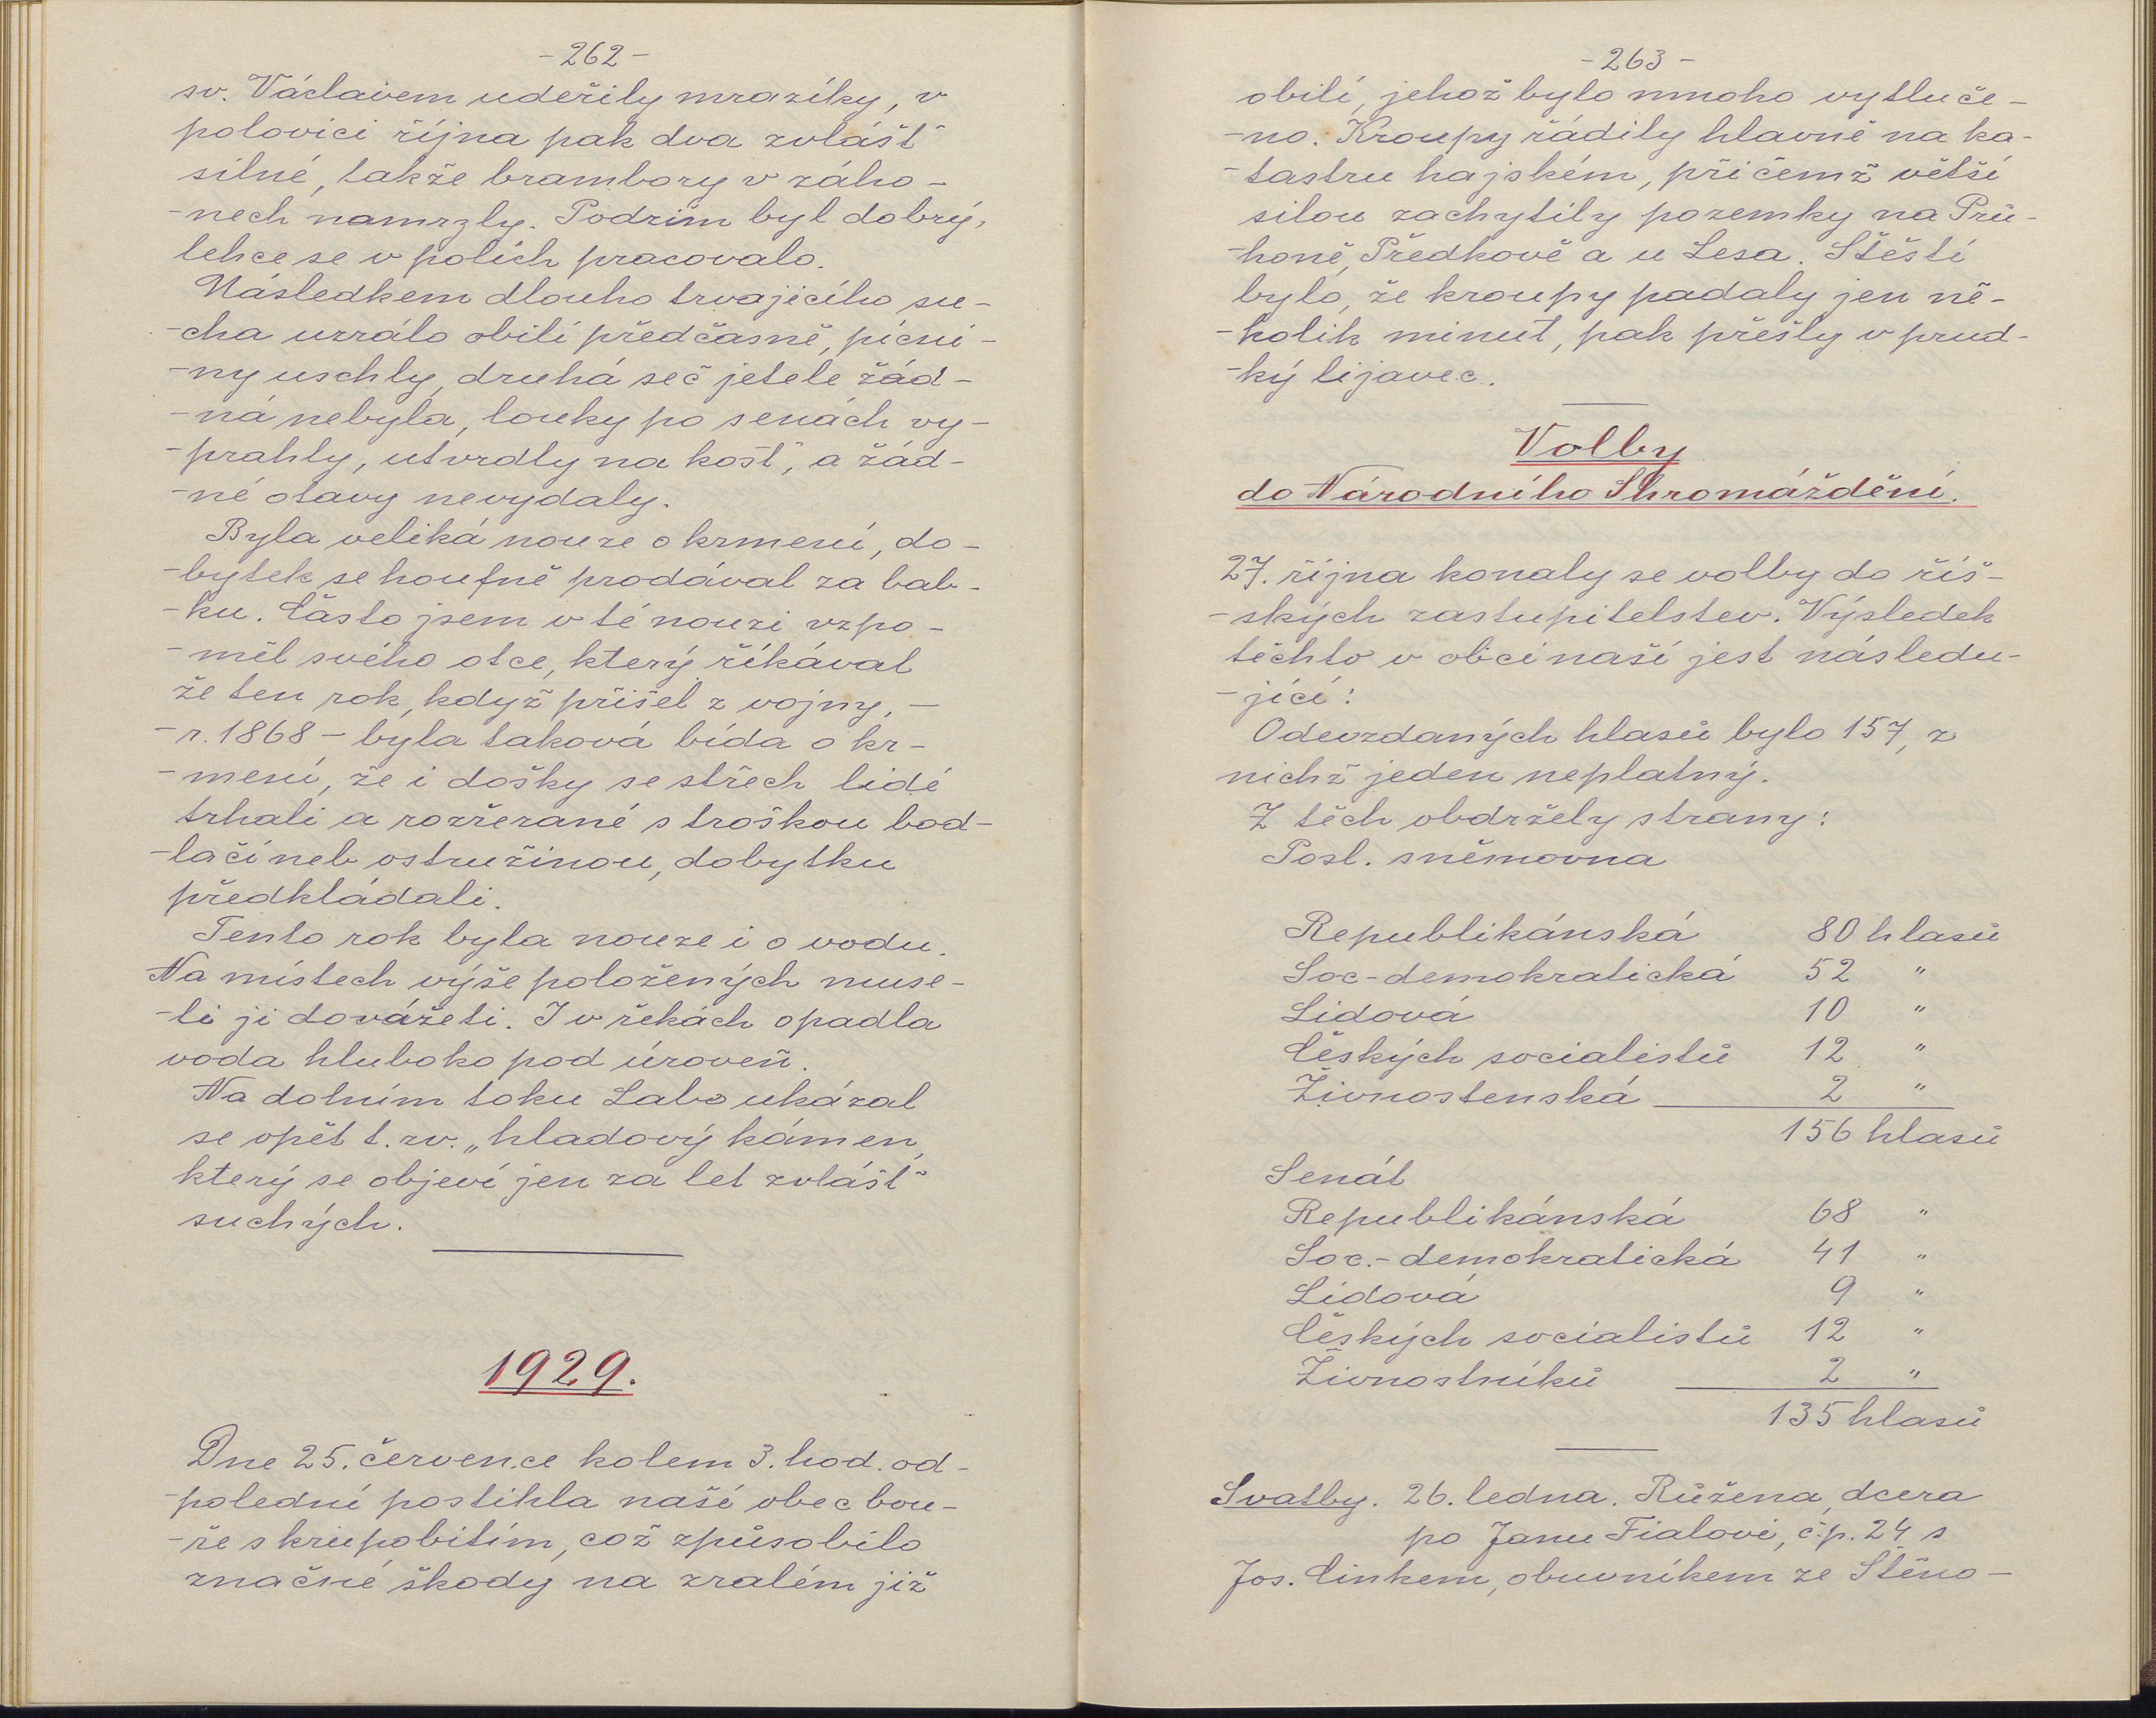 -262-
sv. Václavem udeřily mrazíky, v
polovici října pak dva zvlášť
silné, takže brambory v záho-
-nech namrzly. Podzim byl dobrý,
lehce se v polích pracovalo.
Následkem dlouho trvajícího su-
-cha uzrálo obilí předčasně, pícni-
-ny uschly, druhá seč jetele žád-
-ná nebyla, louky po senách vy-
-prahly, utvrdly na košť, a žád-
-né otavy nevydaly.
Byla veliká nouze o krmení, do-
-bytek se houfně prodával za bab-
-ku. Často jsem v té nouzi vzpo-
-měl svého otce, který říkával
že ten rok, když přišel z vojny, -
-r. 1868 - byla taková bída o kr-
-mení, že i došky se střech lidé
trhali a rozřezané s troškou bod-
-lačí neb ostružinou, dobytku
předkládali.
Tento rok byla nouze i o vodu.
Na místech výše položených muse-
-li ji dovážeti. I v řekách opadla
voda hluboko pod úroveň.
Na dolním toku Labe ukázal
se opět t. zv. „hladový kámen,
který se objeví jen za let zvlášť
suchých.
1929.
Dne 25. července kolem 3. hod. od-
-polední postihla naší obec bou-
-ře s krupobitím, což způsobilo
značné škody na zralém již
-263-
obilí, jehož bylo mnoho vytluče-
-no. Kroupy řádily hlavně na ka-
-tastru hajském, při čemž větší
silou zachytily pozemky na Prů-
-honě, Předkově a u Lesa. Štěstí
bylo, že kroupy padaly jen ně-
-kolik minut, pak přešly v prud-
-ký lijavec.
Volby
do Národního Shromáždění.
27. října konaly se volby do říš-
-ských zastupitelstev. Výsledek
těchto v obci naší jest následu-
-jící:
Odevzdaných hlasů bylo 157, z
nichž jeden neplatný.
Z těch obdržely strany:
Posl. sněmovna
Republikánská 80 hlasů
Soc-demokratická 52 "
Lidová 10 "
Českých socialistů 12 "
Živnostenská 2 "
156 hlasů
Senát
Republikánská 68 "
Soc.-demokratická 41 "
Lidová 9 "
Českých socialistů 12 "
Živnostníků 2 "
135 hlasů
Svatby. 26. ledna. Růžena, dcera
po Janu Fialovi, č.p. 24 s
Jos. Cinkem, obuvníkem ze Stěno-